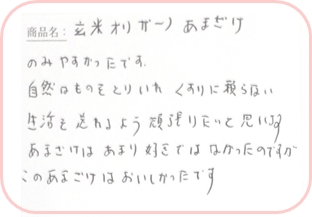 商品名：玄米オリガーノ あまざけ
のみやすかったです.
自然なものをとりいれ くすりに頼らない
生活を送れるよう 頑張りたいと思います
あまざけは あまり好きでは なかったのですが
このあまざけは おいしかったです